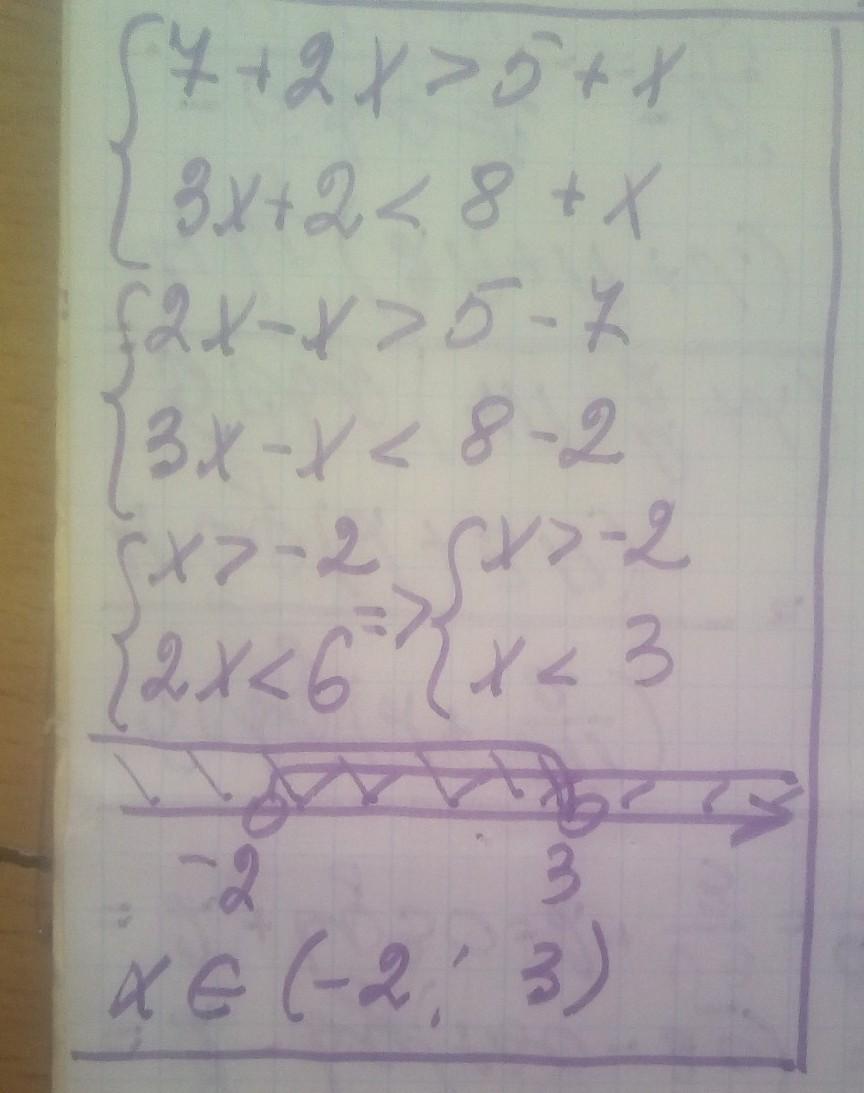 7 + 2x > 5 + x
3x + 2 < 8 + x
2x - x > 5 - 7
3x - x < 8 - 2
x > -2 => x > -2
2x < 6 x < 3
-2 3
x ∈ (-2; 3)